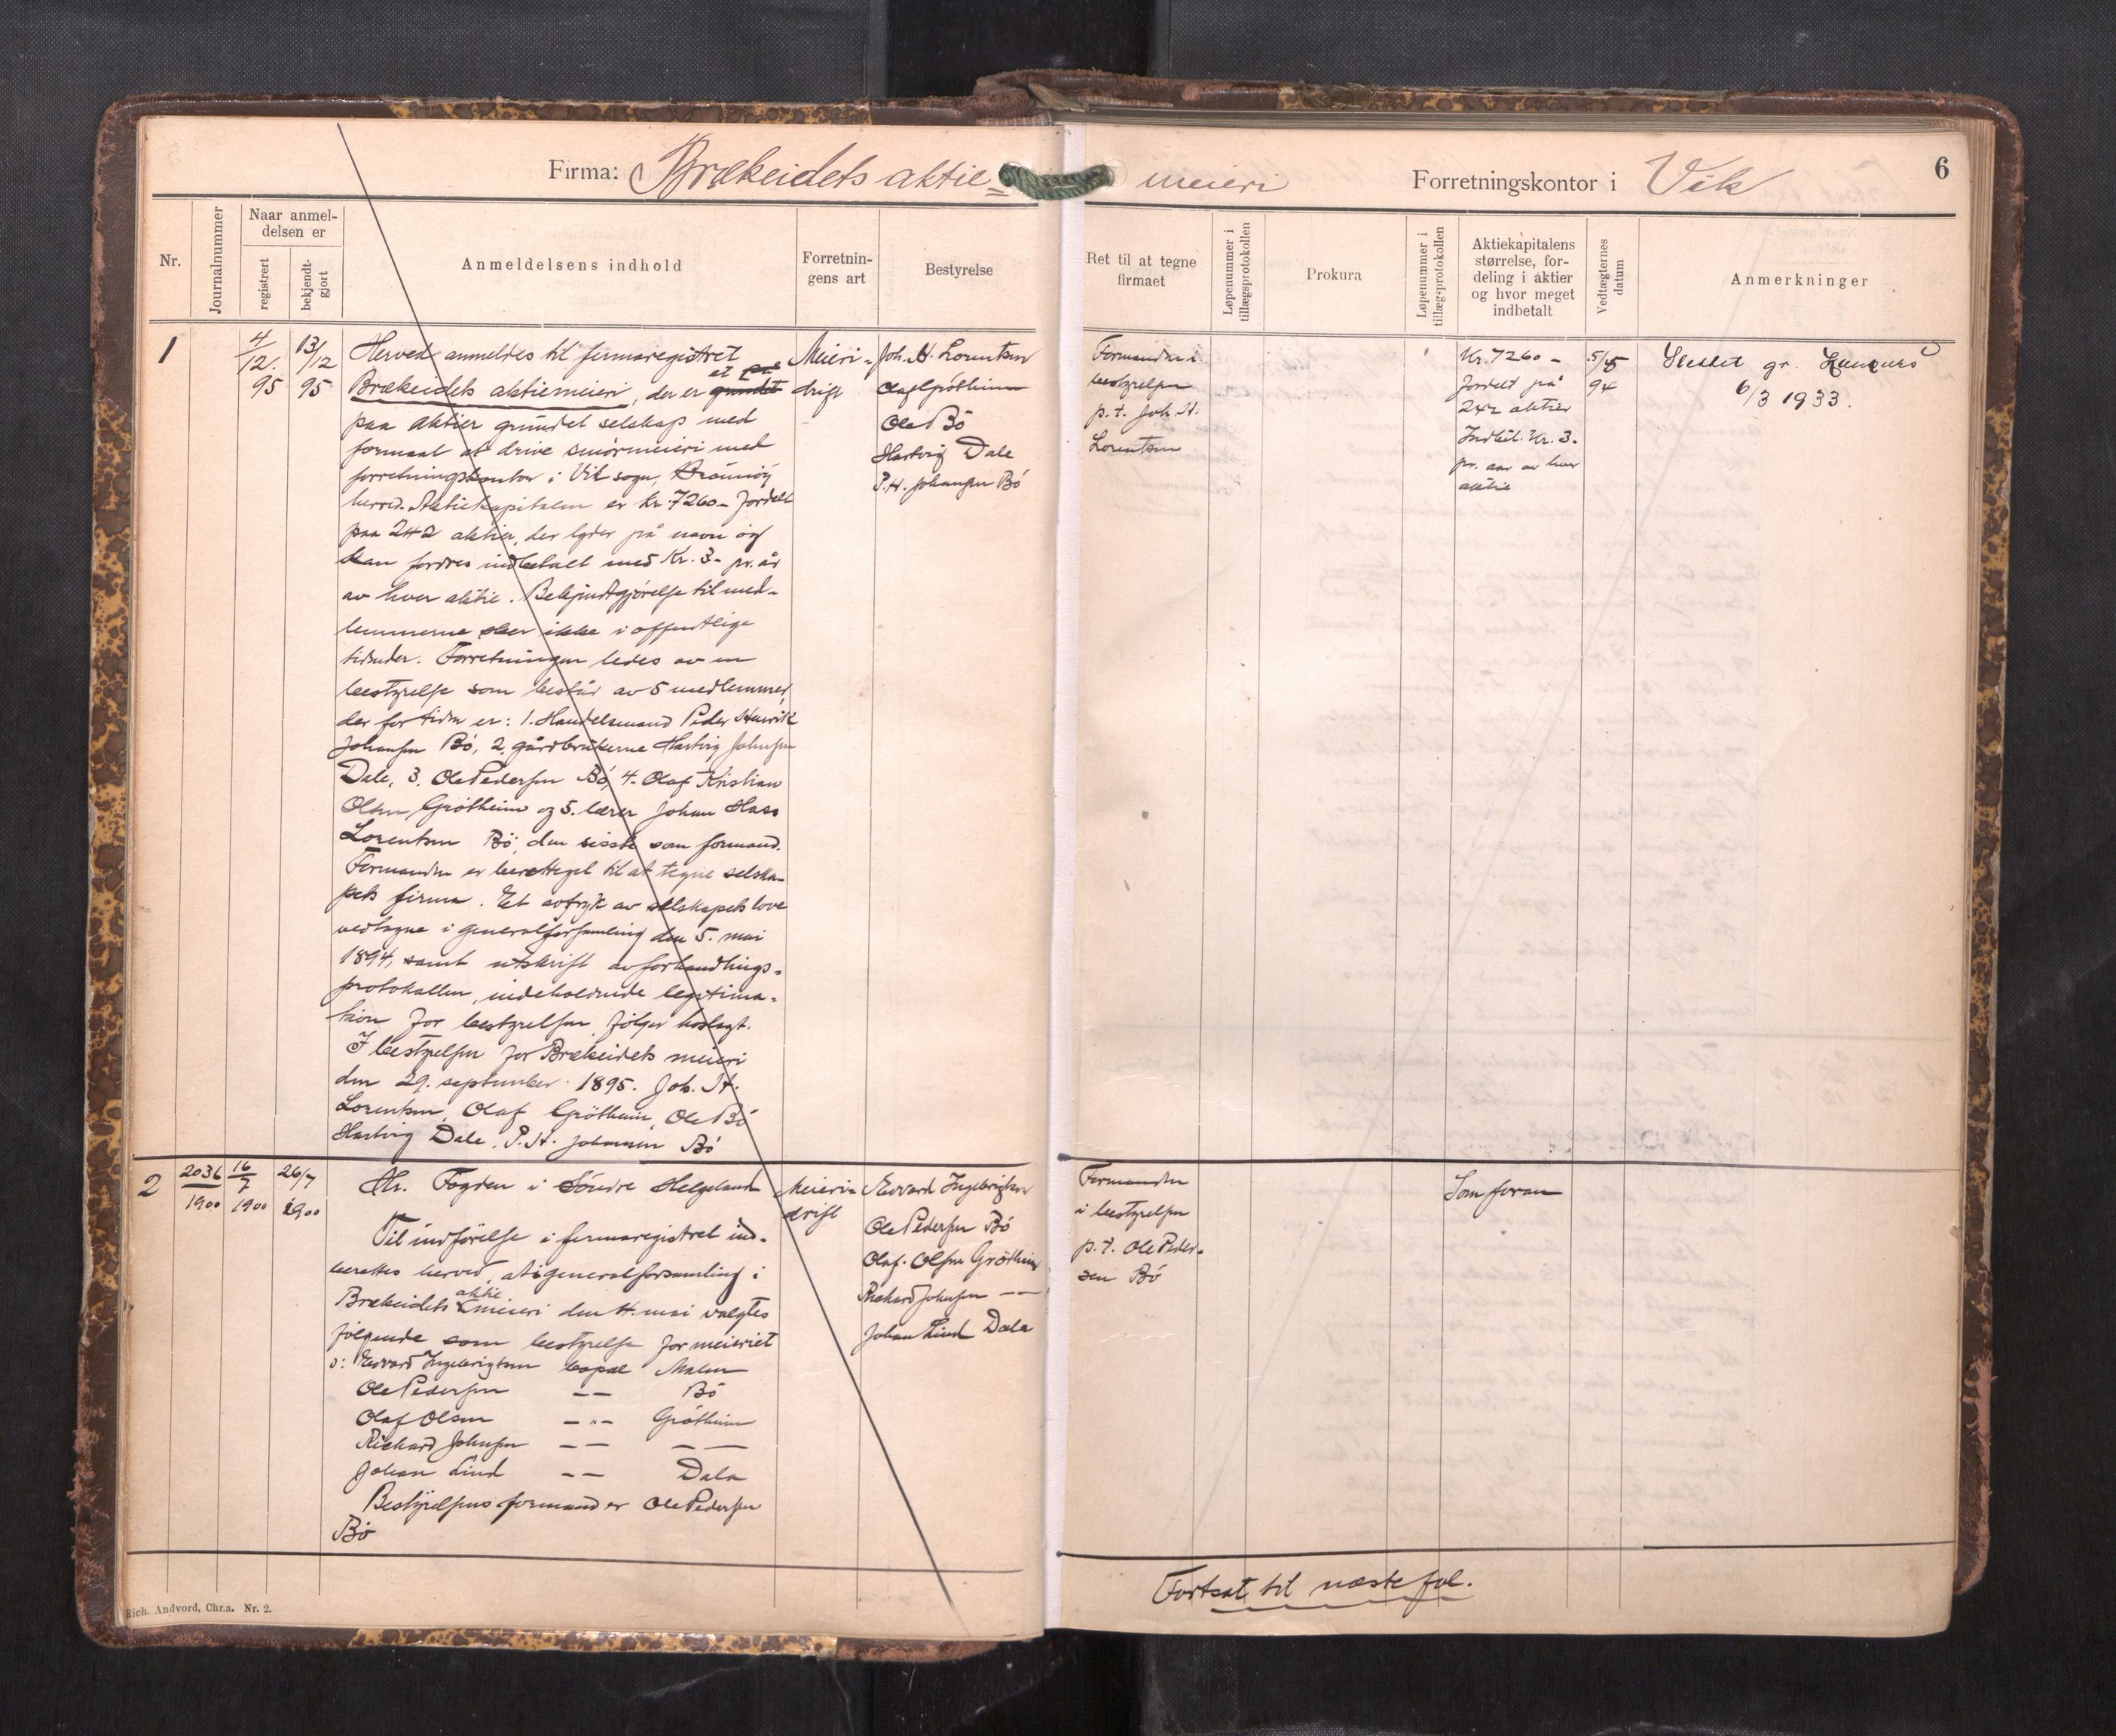 Firma: Brækeidets aktie=
meieri Forretningskontor i Vik 6
Nr.
Journalnummer
Naar anmel-
delsen er
registrert
bekjendt-
gjort
Anmeldelsens indhold
Forretnin-
gens art
Bestyrelse
Ret til at tegne
firmaet
Løpenummer i
tillægsprotokollen
Prokura
Løpenummer i
tillægsprotokollen
Aktiekapitalens
størrelse, for-
deling i aktier
og hvor meget
indbetalt
Vedtægternes
datum
Anmerkninger
1
4/12. 95
13/12 95
Herved anmeldes til firmaregistret
Brækeidets aktiemeieri, der er et
paa aktier grundet selskap med
formaal at drive smørmeieri med
forretningskontor i Vik sogn, Brønnøy
herred. Aktiekapitalen er Kr. 7260- fordelt
paa 242 aktier, der lyder på navn og
kan fordres indbetalt med Kr. 3- pr. år
av hver aktie. Bekjendtgjørelse til med-
lemmerne sker ikke i offentlige
tidender. Forretningen ledes av en
bestyrelse som består av 5 medlemmer,
der for tiden er: 1. Handelsmand Peder Henrik
Johansen Bø, 2. gårdbrukerne Hartvig Johnsen
Dale, 3. Ole Pedersen Bø, 4. Olaf Kristian
Olsen Grøtheim og 5. lærer Johan Hass
Lorentsen Bø, den sisste som formand.
Formanden er berettiget til at tegne selska-
pets firma. Et avtryk av selskapets love
vedtagne i generalforsamling den 5. mai
1894, samt utskrift av forhandlings-
protokollen, indeholdende legitima-
tion for bestyrelsen, følger hoslagt.
I bestyrelsen for Brækeidets meieri
den 29. september 1895. Joh. H.
Lorentsen, Olaf Grøtheim, Ole Bø
Hartvig Dale, P. H. Johansen Bø
Meieri-
drift
Joh. H. Lorentsen
Olaf Grøtheim
Ole Bø
Hartvig Dale
P. H. Johansen Bø
Formanden i
bestyrelsen
p. t. Joh. H.
Lorentsen
Kr. 7260-
fordelt på
242 aktier
Indbet. Kr. 3-
pr. aar av hver
aktie
5/5
94
Slettet gr.
6/3 1933.
2
2036
1900
16/7
1900
26/7
1900
Hr. Fogden i Søndre Helgeland
Til indførelse i firmaregistret ind-
berettes herved, at i generalforsamling i
Brækeidets aktiemeieri den 4. mai valgtes
følgende som bestyrelse for meieriet
ɔ: Edvard Ingebrigtsen bopæl Malen
Ole Pedersen —— Bø
Olaf Olsen —„— Grøtheim
Richard Johnsen —— — —
Johan Lind —— Dale
Bestyrelsens formand er Ole Pedersen
Bø
Meieri=
drift
Edvard Ingebrigtsen
Ole Pedersen Bø
Olaf Olsen Grøtheim
Richard Johnsen ——
Johan Lind Dale
Formanden
i bestyrelsen
p. t. Ole Peder-
sen Bø
Som foran
Fortsat til næste fol.
Rich. Andvord, Chr.a. Nr. 2.